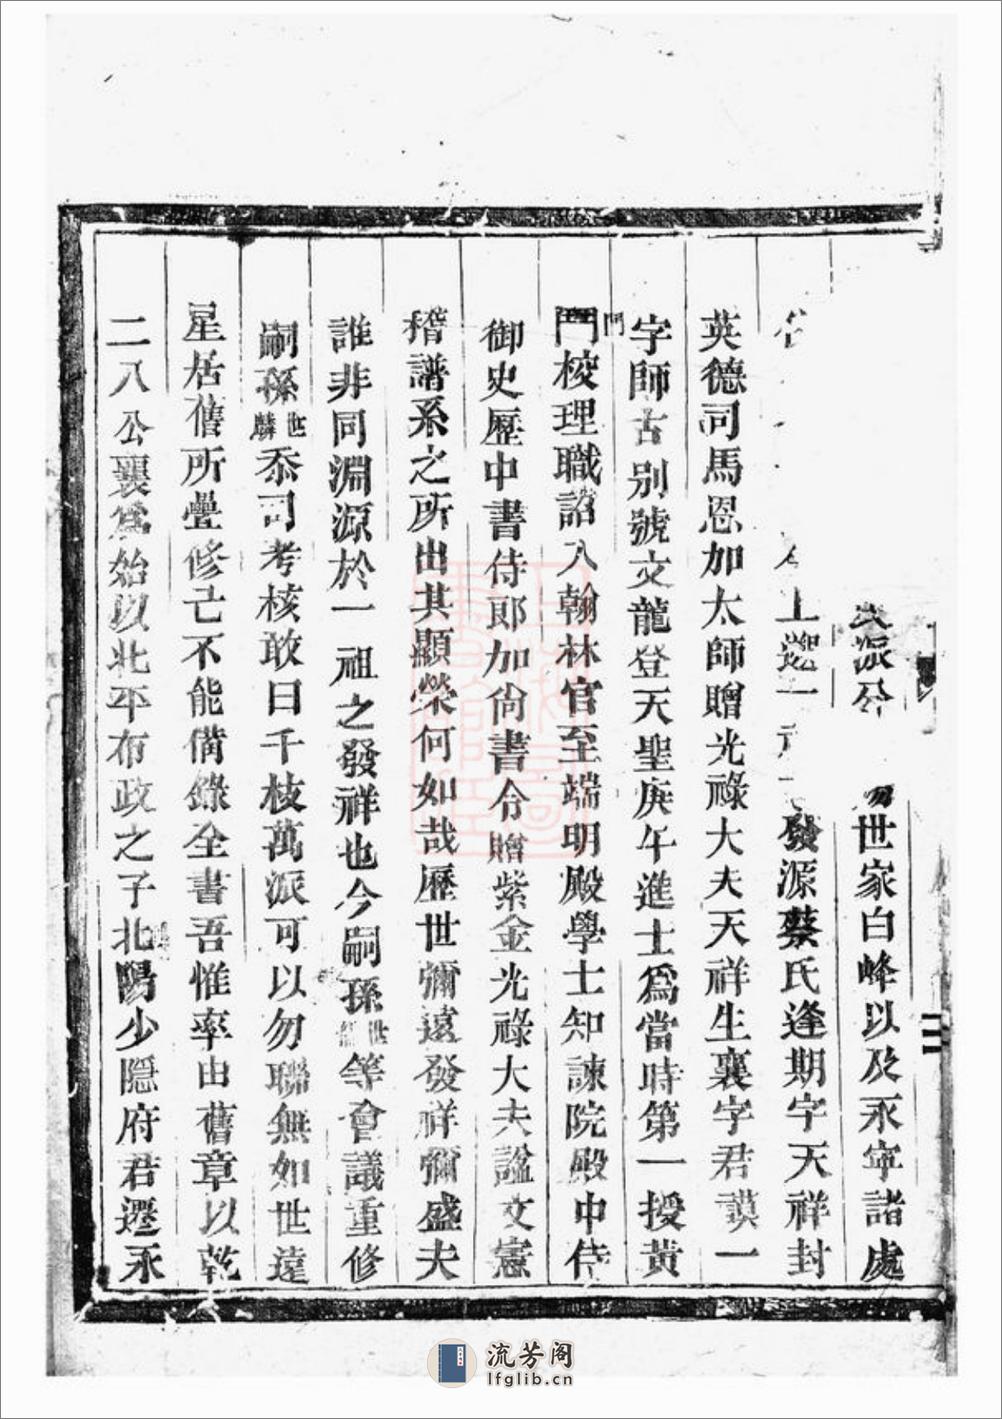 派分 世家白峰以及永寧諸處
上遡一 發源蔡氏逢期字天祥封
英德司馬恩加太師贈光祿大夫天祥生襄字君謨一
字師古別號文龍登天聖庚午進士為當時第一授黃
門校理職詔入翰林官至端明殿學士知諫院殿中侍
御史歷中書侍郎加尚書令贈紫金光祿大夫謚文憲
稽譜系之所由其顯榮何如哉歷世彌遠發祥彌盛夫
誰非同淵源於一祖之發祥也今嗣孫世等會議重修
嗣孫世麟忝司考核敢曰千枝萬派可以勿聯無如世遠
星居舊所疊修亡不能備錄全書吾惟率由舊章以乾
二八公襄為始以北平布政之子北陽少隱府君遷永
流芳阁
lfglib.cn